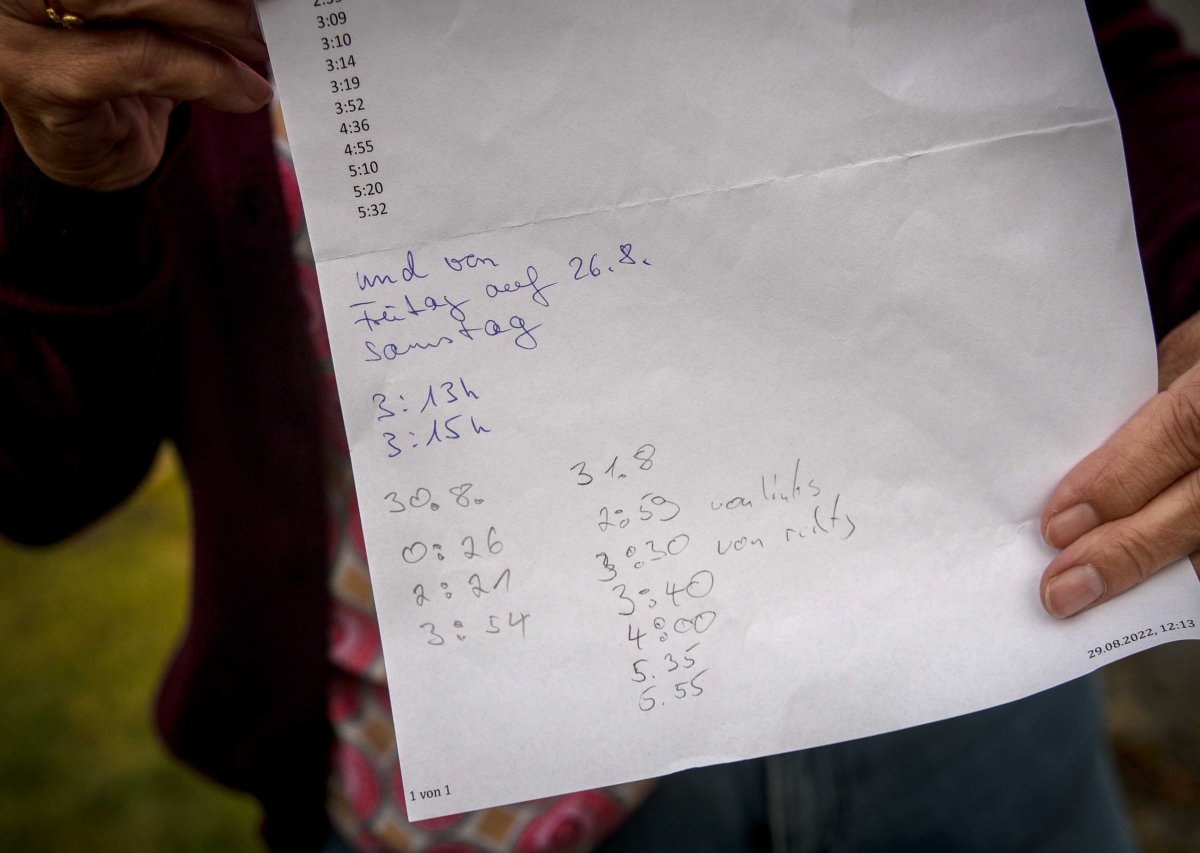 3:09
3:10
3:14
3:19
3:52
4:36
4:55
5:10
5:20
5:32
und von
Freitag auf 26.8.
Samstag
3:13h
3:15h
30.8.
0:26
2:21
3:54
31.8
2:59 von links
3:30 von rechts
3:40
4:00
5.35
6.55
29.08.2022, 12:13
1 von 1